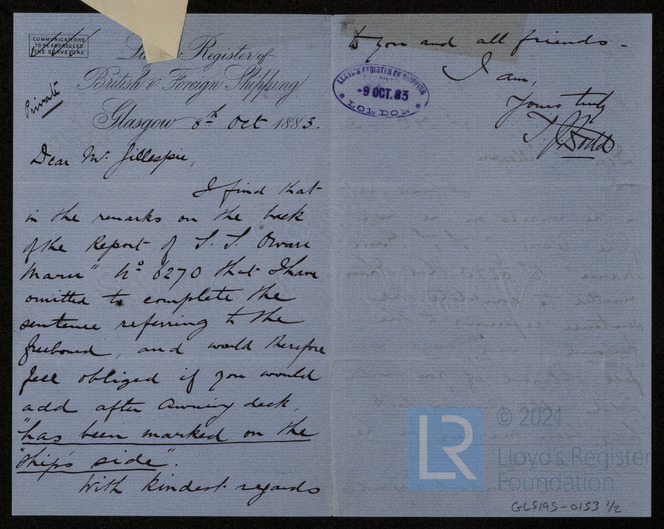 COMMUNICATIONS
TO BE ADDRESSED
THE SURVEYORS
Private
Register of
British & Foreign Shipping
Glasgow 8th Oct 1883.
Dear Mr. Gillespie,
I find that
in the remarks on the back
of the Report of S.S. "Owari
Maru" No 6270 that I have
omitted to complete the
sentence referring to the
freeboard, and would therefore
feel obliged if you would
add after awning deck,
"has been marked on the
"ship's side".
With kindest regards
to you and all friends -
I am,
Yours truly
T. J. Dodd
LLOYD'S REGISTER OF SHIPPING
-9 OCT. 83
LONDON
LR
© 2021
Lloyd's Register
Foundation
GLS195-0153 1/2